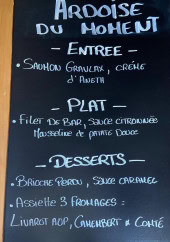 ARDOISE
DU MOMENT
- ENTREE -
• SAUMON GRAVLAX, CRÈME
d'ANETH
- PLAT -
• FILET DE BAR, SAUCE CITRONNÉE
MOUSSELINE DE PATATE DOUCE
- DESSERTS -
• BRIOCHE PERDU, SAUCE CARAMEL
• ASSIETTE 3 FROMAGES :
LIVAROT AOP, CAMEMBERT & COMTÉ